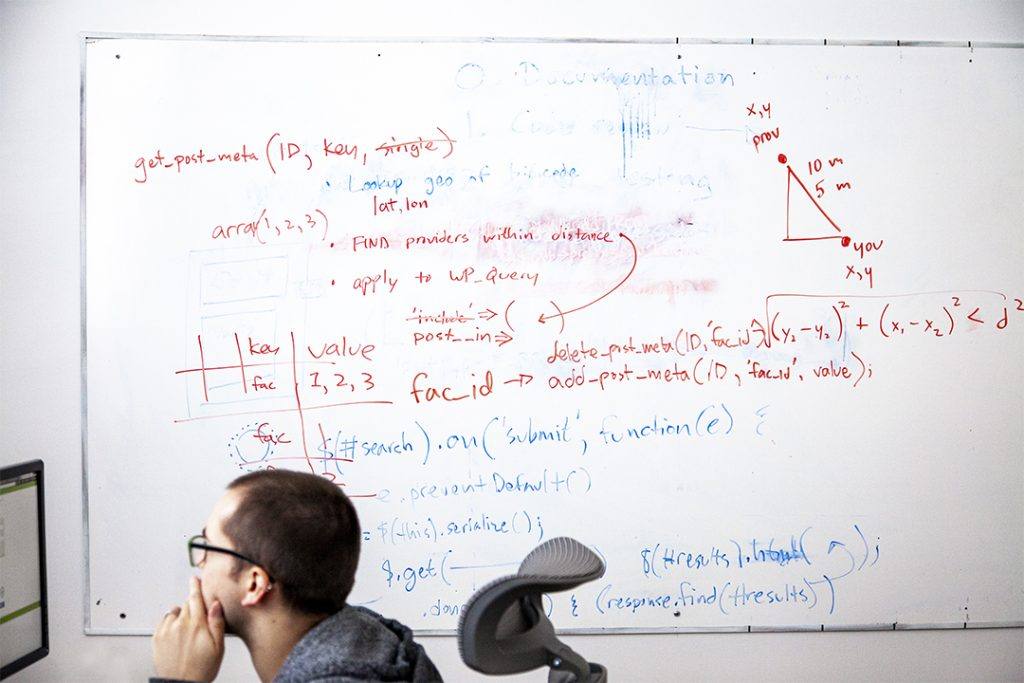 O. Documentation
1. Code review
x,y
prov
get_post_meta (ID, key, single)
10 m
5 m
• Lookup geo of
lat, lon
array(1, 2, 3)
• FIND providers within distance
you
x,y
• apply to WP_Query
'include' => ( )
post__in =>
delete_post_meta(ID, 'fac_id')
√(y₂-y₂)² + (x₁-x₂)² < d²
key value
fac 1, 2, 3
fac_id → add_post_meta(ID, 'fac_id', value);
fac
$(#search).on('submit', function(e) {
e.preventDefault()
= $(this).serialize();
$.get(
$(#results).html( );
.don
{ (response.find(#results))